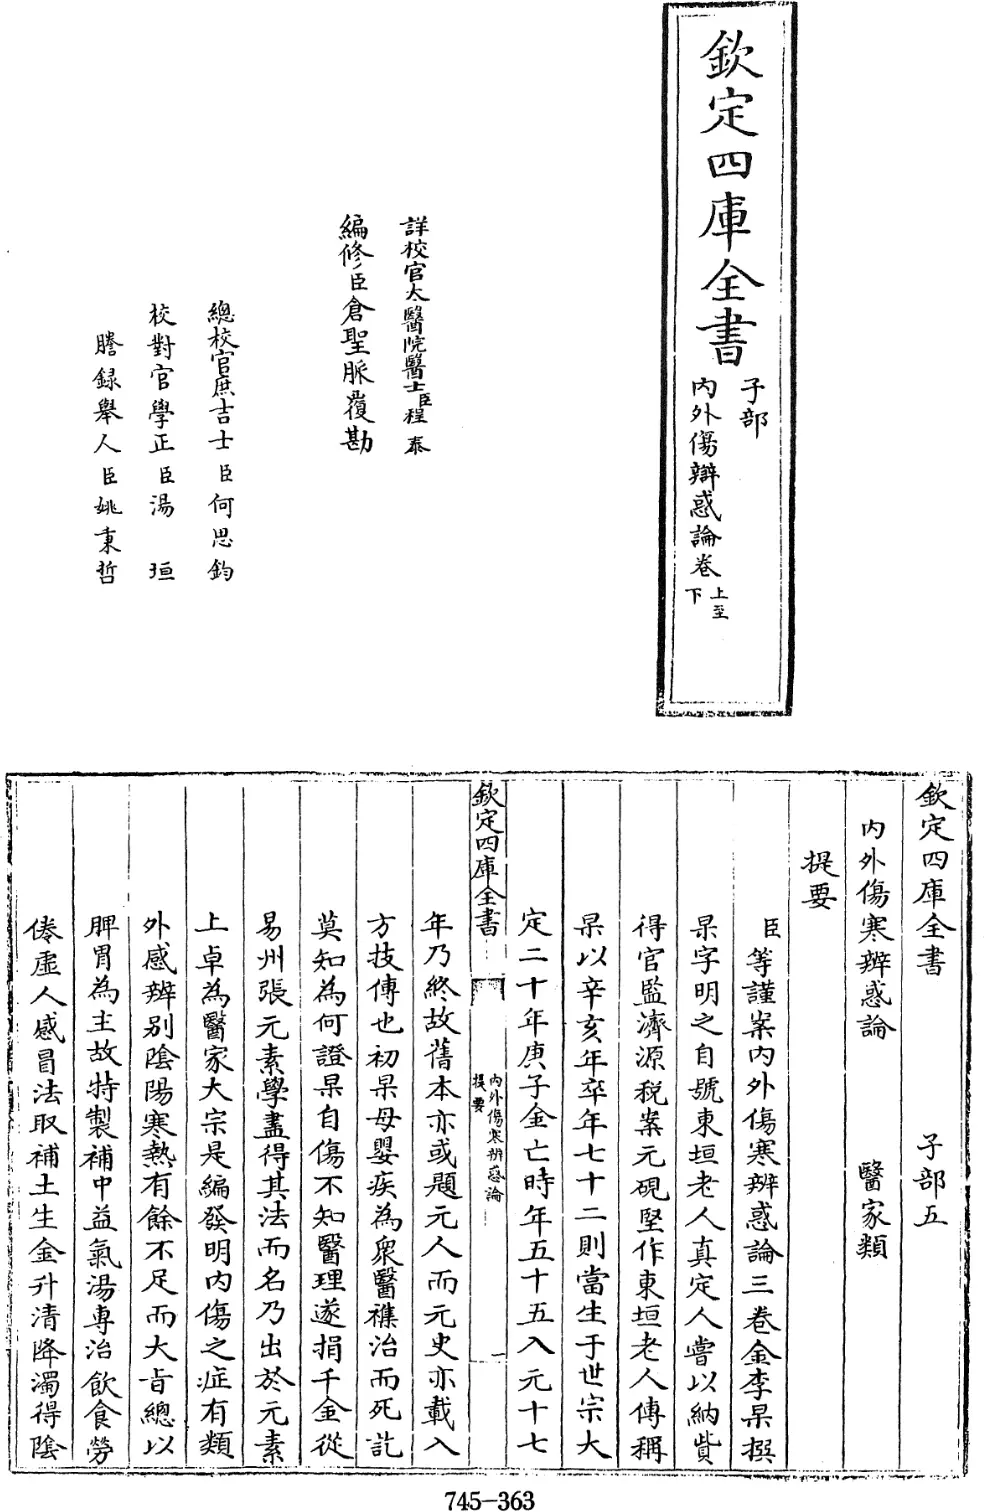 欽定四庫全書
子部
內外傷辯惑論卷上至下
詳校官太醫院醫士臣程泰
編修臣倉聖脈覆勘
總校官庶吉士臣何思鈞
校對官學正臣湯垣
謄錄舉人臣姚秉哲
欽定四庫全書 子部五
內外傷寒辨惑論 醫家類
提要
臣等謹案內外傷寒辨惑論三卷金李杲撰
杲字明之自號東垣老人真定人嘗以納貲
得官監濟源税案元硯堅作東垣老人傳稱
杲以辛亥年卒年七十二則當生于世宗大
定二十年庚子金亡時年五十五入元十七
欽定四庫全書 內外傷寒辨惑論 提要 一
年乃終故舊本亦或題元人而元史亦載入
方技傳也初杲母嬰疾為衆醫襍治而死訖
莫知為何證杲自傷不知醫理遂捐千金從
易州張元素學盡得其法而名乃出於元素
上卓為醫家大宗是編發明內傷之症有類
外感辨别陰陽寒熱有餘不足而大旨總以
脾胃為主故特製補中益氣湯専治飲食勞
倦虛人感冒法取補土生金升清降濁得陰
745-363